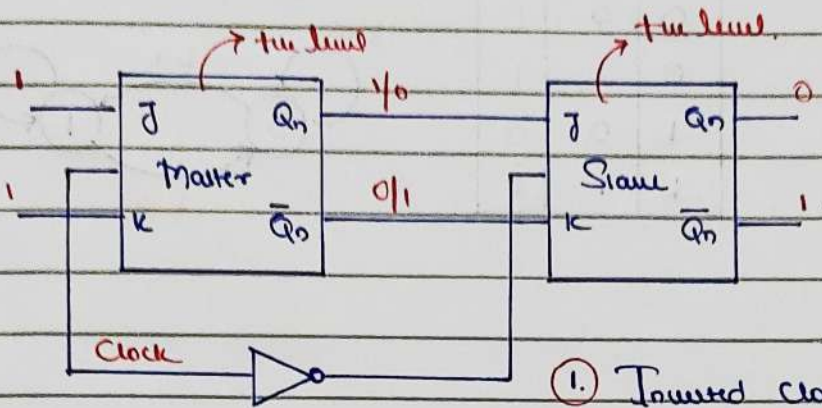 +ve level +ve level.
1 1/0 0
J Qn J Qn
Master Slave
1 0/1 1
K Q̅n K Q̅n
Clock
1. Inverted Clo